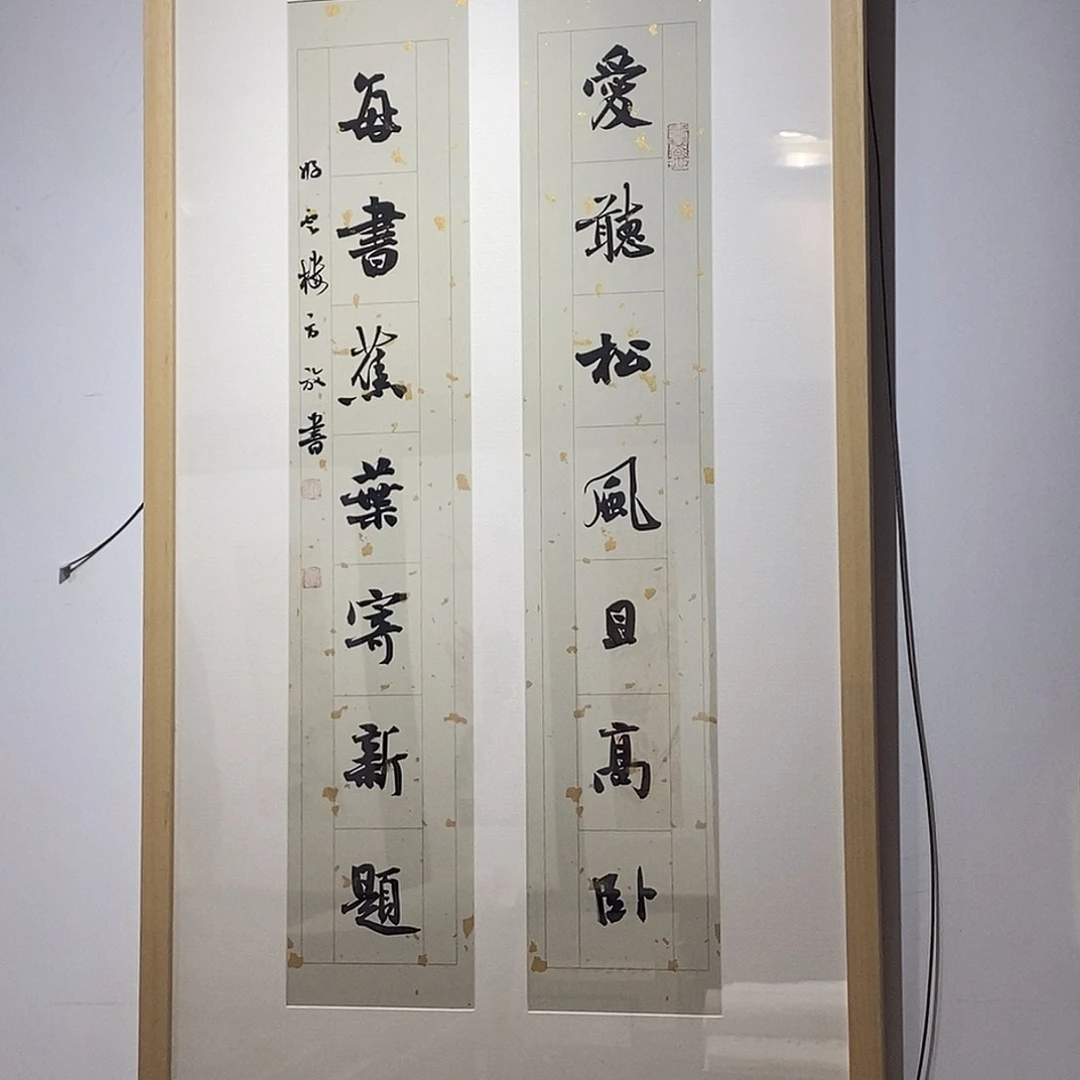 愛聽松風且高卧
每書蕉葉寄新題
樓方放書